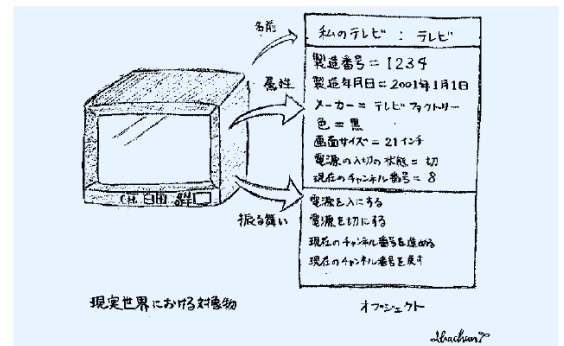 名前
私のテレビ : テレビ
製造番号 = 1234
属性
製造年月日 = 2001年1月1日
メーカー = テレビファクトリー
色 = 黒
画面サイズ = 21インチ
電源の入切の状態 = 切
現在のチャンネル番号 = 8
振る舞い
電源を入にする
電源を切にする
現在のチャンネル番号を進める
現在のチャンネル番号を戻す
現実世界における対象物
オブジェクト